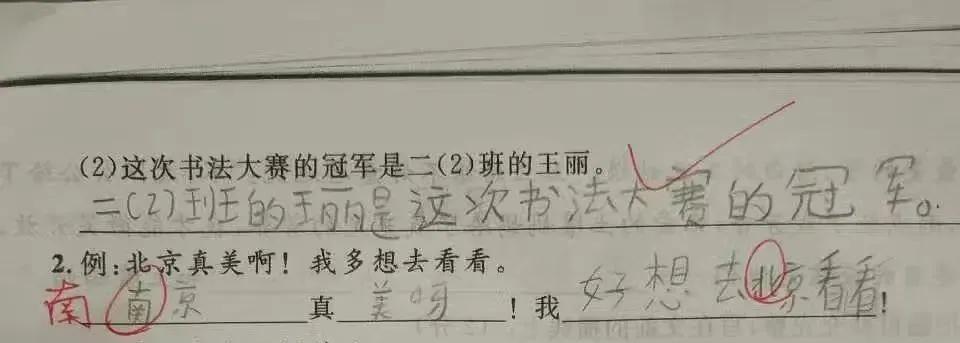 (2)这次书法大赛的冠军是二(2)班的王丽。
二(2)班的王丽是这次书法大赛的冠军。
2.例:北京真美啊!我多想去看看。
南 南京真美呀!我好想去北京看看!